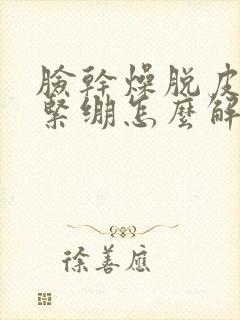 臉幹燥脱皮
緊繃怎麼解
徐善應